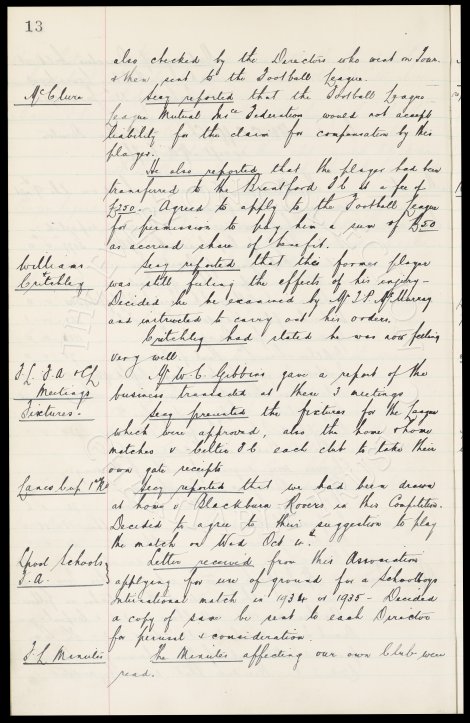 13
also checked by the Directors who went on Tour
& then sent to the Football League.
McClure
Secy reported that the Football League
League Mutual Insce Federation would not accept
liability for the claim for compensation by this
player.
He also reported that the player had been
transferred to the Brentford F.C. at a fee of
£250. Agreed to apply to the Football League
for permission to pay him a sum of £50
as accrued share of benefit.
Williams
& Critchley
Secy reported that the former player
was still feeling the effects of his injury -
Decided he be examined by Mr J.P. McMurray
and instructed to carry out his orders.
Critchley had stated he was now feeling
very well.
F.L. F.A. & CL
Meetings
Mr W.C. Gibbins gave a report of the
business transacted at these 3 meetings
Fixtures.
Secy presented the fixtures for the League
which were approved, also the home & home
matches v Celtic F.C. each club to take their
own gate receipts
Lancs Cup 1st Rd
Secy reported that we had been drawn
at home v Blackburn Rovers in this Competition.
Decided to agree to their suggestion to play
the match on Wed Oct
Lpool Schools
F.A.
Letter received from this Association
applying for use of ground for a Schoolboys
International match in 1934 or 1935 - Decided
a copy of same be sent to each Director
for perusal & consideration.
F.L. Minutes
The Minutes affecting our own Club were
read.